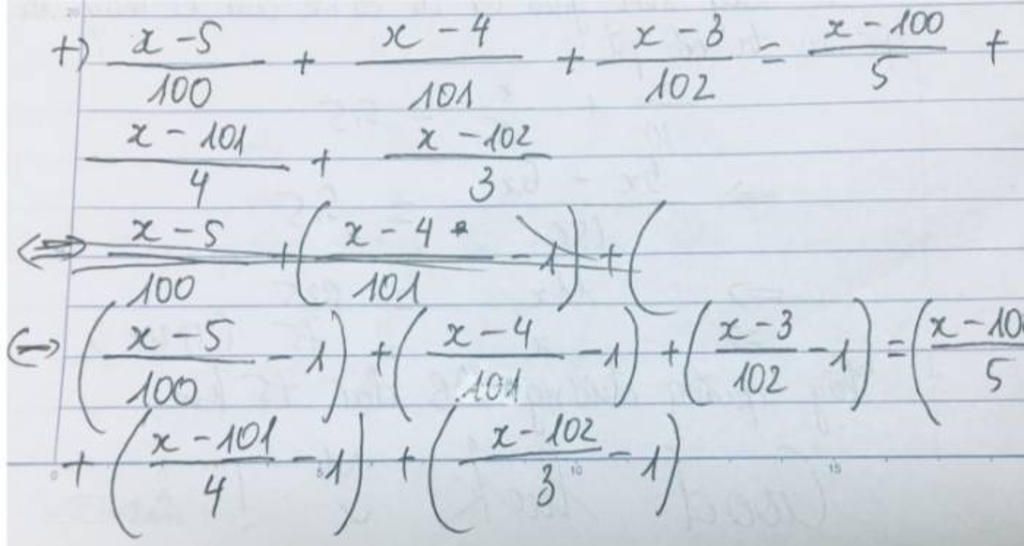 +) \frac{x-5}{100} + \frac{x-4}{101} + \frac{x-3}{102} = \frac{x-100}{5} +
\frac{x-101}{4} + \frac{x-102}{3}
⇔ \frac{x-5}{100} + (\frac{x-4}{101} - 1) + (
⇔ (\frac{x-5}{100} - 1) + (\frac{x-4}{101} - 1) + (\frac{x-3}{102} - 1) = (\frac{x-10}{5}
+ (\frac{x-101}{4} - 1) + (\frac{x-102}{3} - 1)